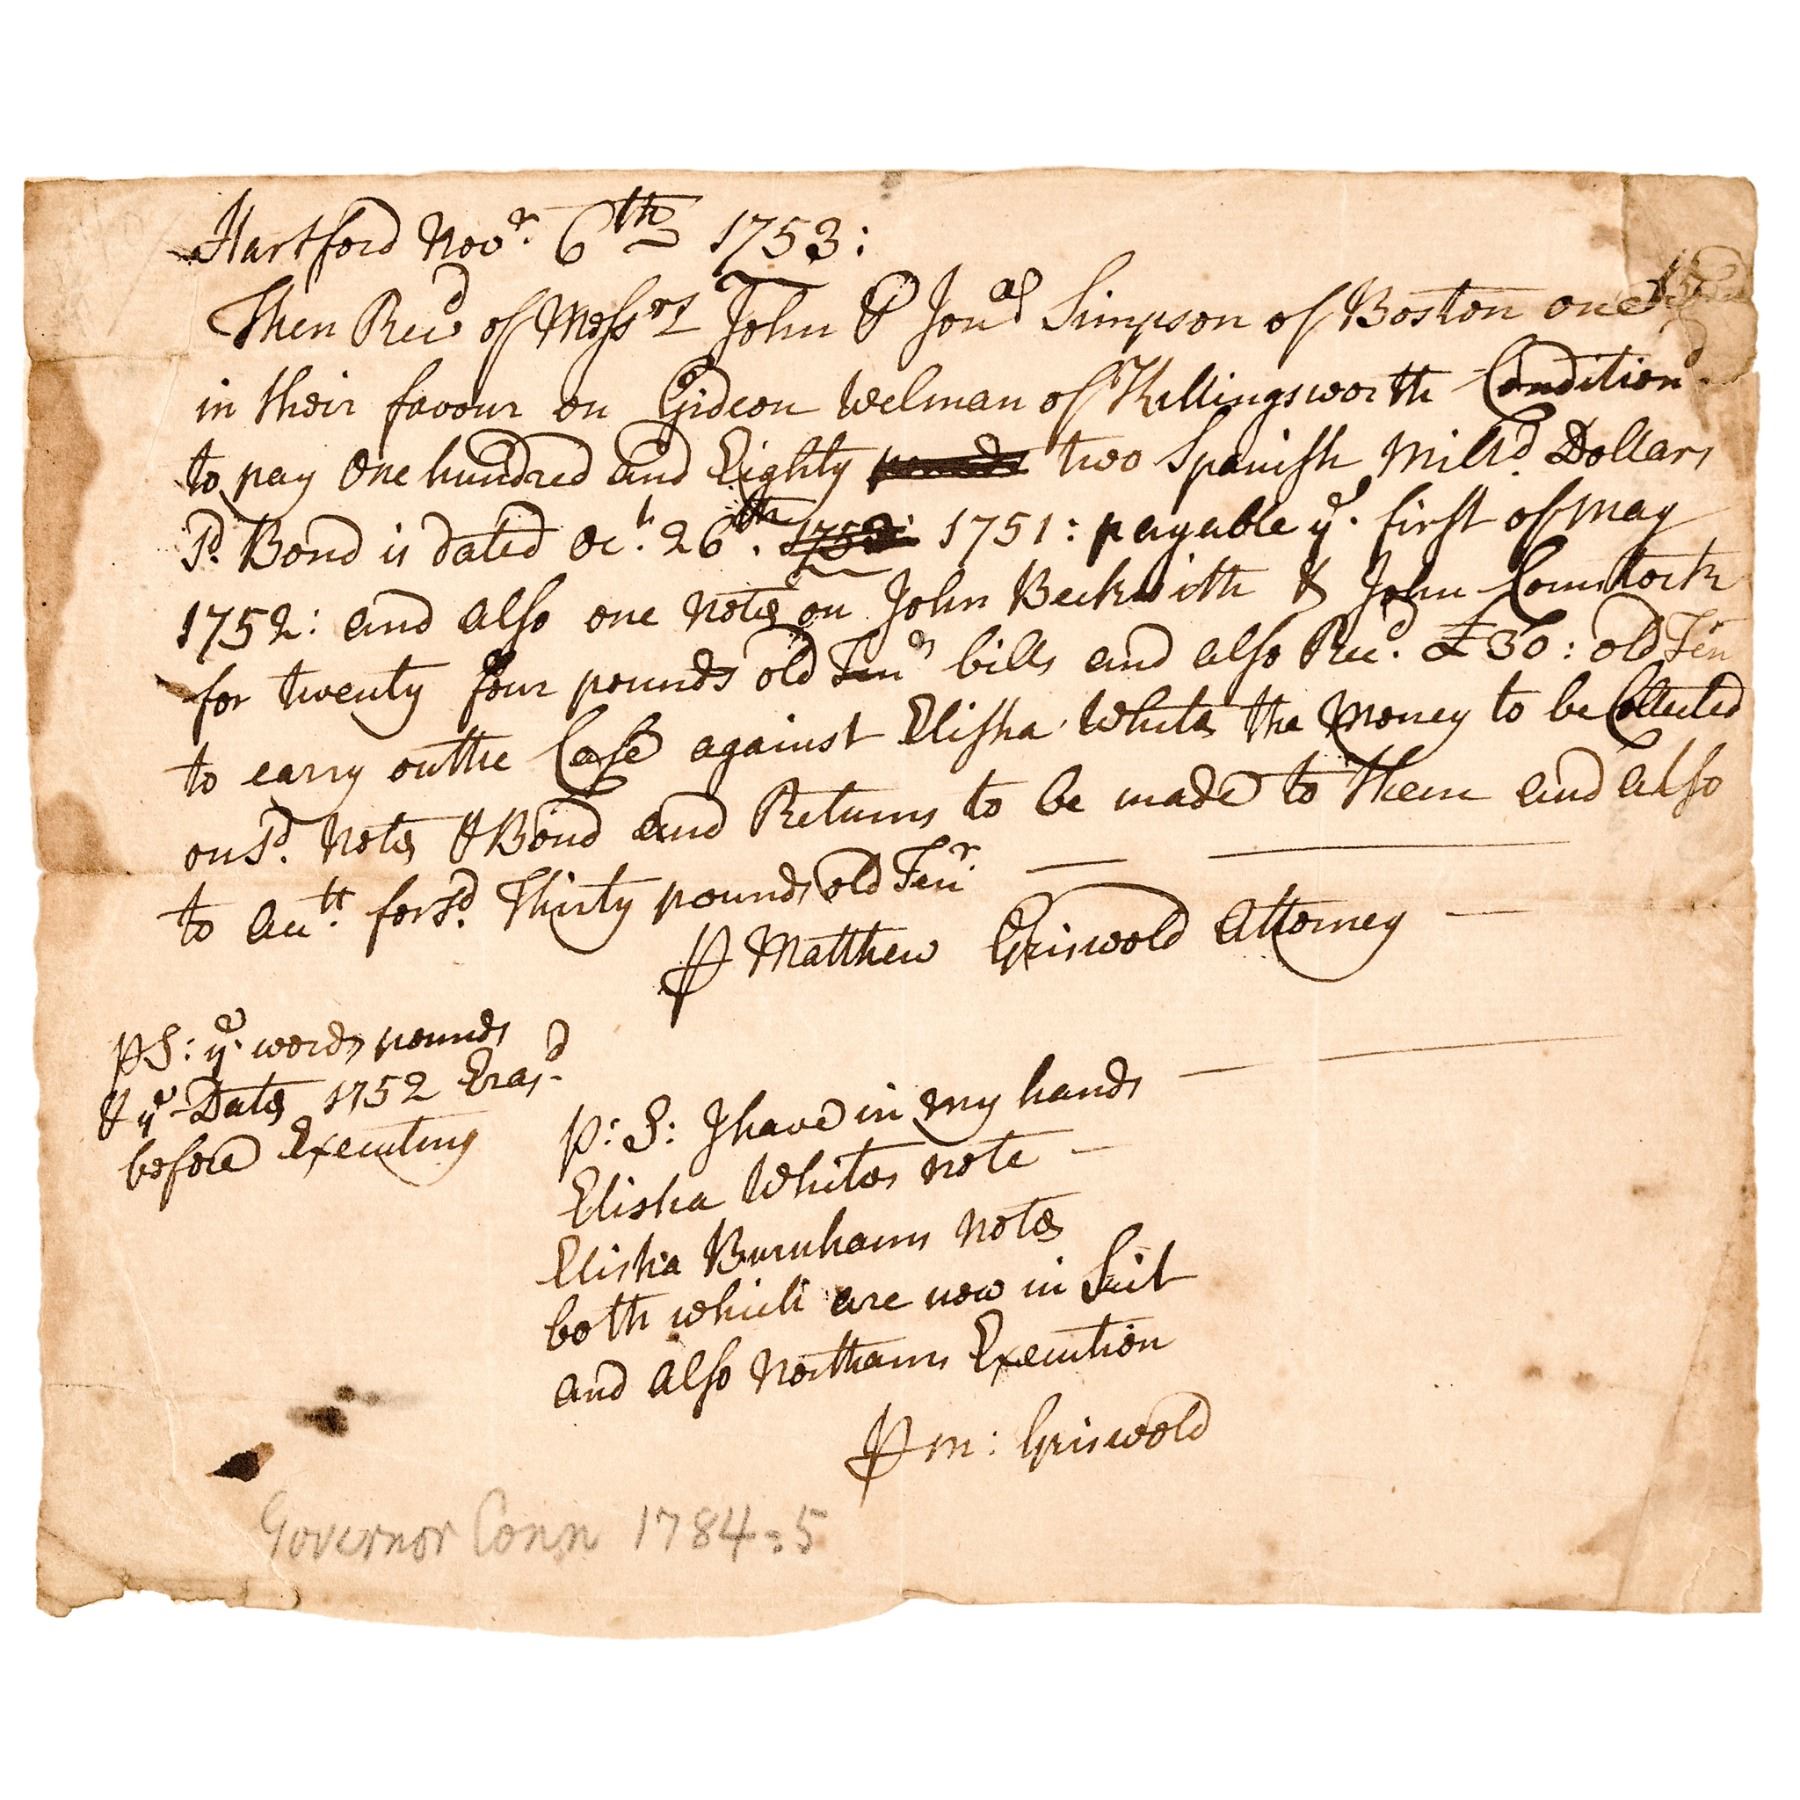 Hartford Novr. 6th 1753:
Then Recd of Messrs John & Jonas Simpson of Boston one
in their favour on Gideon Welman of Killingsworth Condition
to pay One hundred and Eighty pounds two Spanish Milld Dollars
sd. Bond is dated Oct. 26th. 1752: 1751: payable ye. first of May
1752: and also one note on John Beckwith & John Comstock
for twenty four pounds old Tenr bills and also Recd. £30: old Ten
to carry on the Case against Elisha White the Money to be Collected
on sd. Note & Bond and Returns to be made to them and also
to acctt. for sd. Thirty pounds old Tenr. —
⅌ Matthew Griswold Attorney —
PS: ye. words pounds
& ye Date 1752 Erasd
before Executing
P: S: I have in my hands —
Elisha Whites note —
Elisha Burnhams note
both which are now in Suit
and also Northams Execution
⅌ M: Griswold
Governor Conn 1784=5